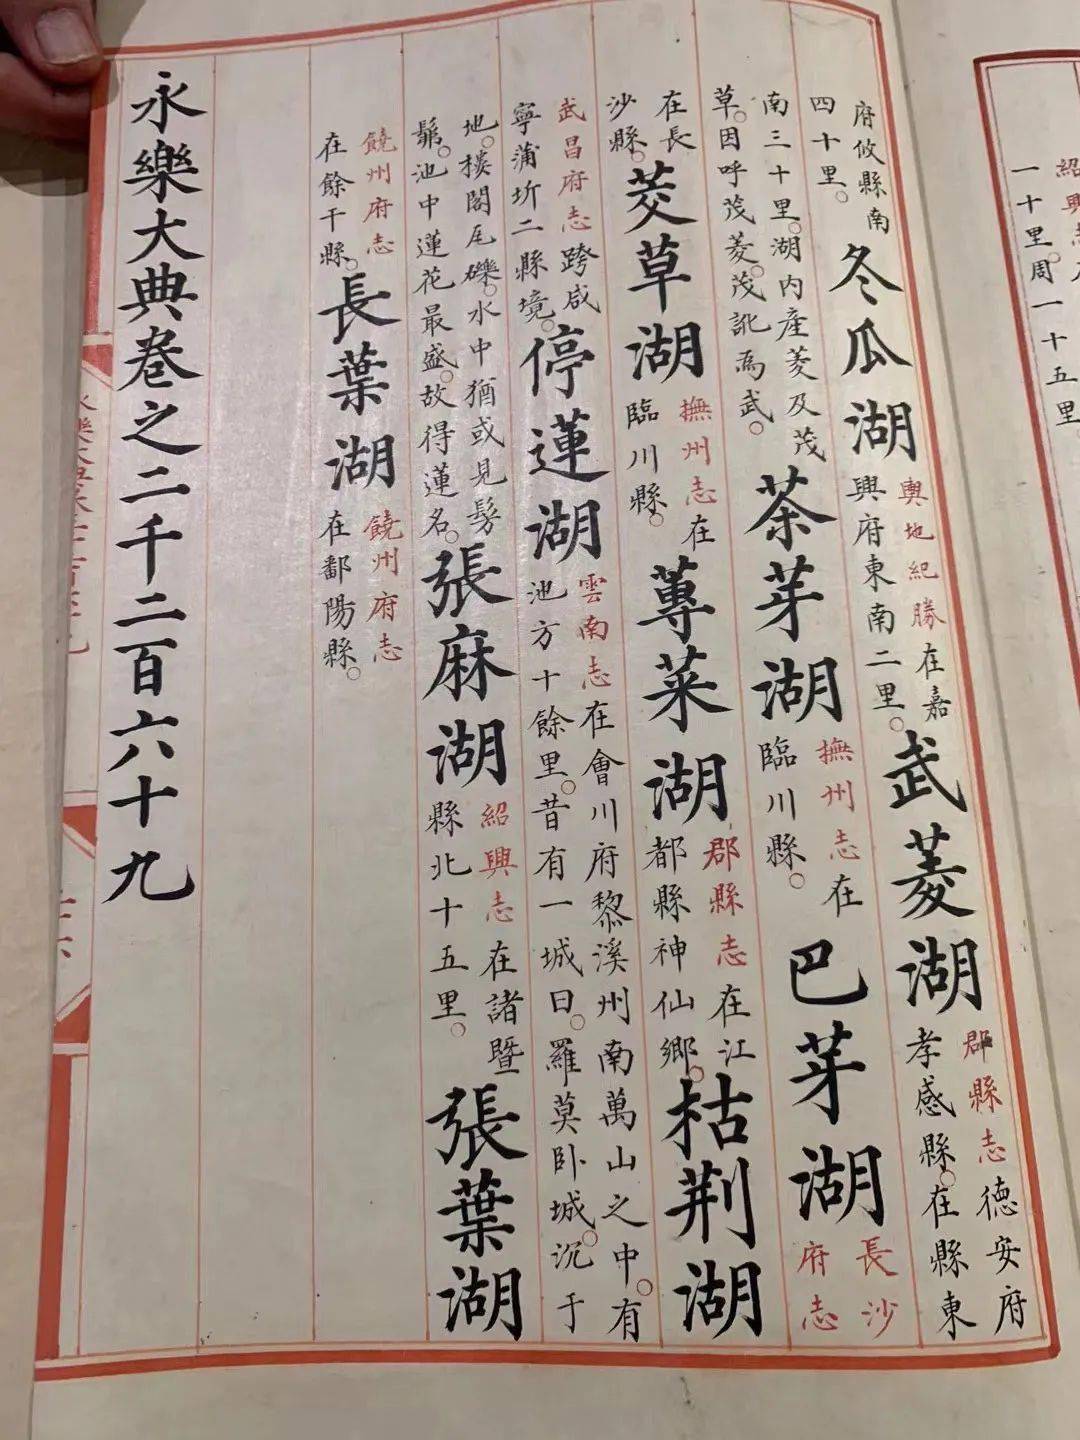 一十里周一十五里
府攸縣南
四十里。
冬瓜湖
輿地紀勝在嘉
興府東南二里。
武菱湖
郡縣志德安府
孝感縣。在縣東
南三十里。湖内產菱及茂
草。因呼茂菱。茂訛為武。
茶芽湖
撫州志在
臨川縣。
巴芽湖
長沙
府志
在長
沙縣。
茭草湖
撫州志在
臨川縣。
蓴菜湖
郡縣志在江
都縣神仙鄉。
枯荆湖
武昌府志跨咸
寧蒲圻二縣境。
停蓮湖
雲南志在會川府黎溪州南萬山之中。有
池方十餘里。昔有一城曰。羅莫卧城。沉于
地。樓閣瓦礫。水中猶或見髣
髴。池中蓮花最盛。故得蓮名。
張麻湖
紹興志在諸暨
縣北十五里。
張葉湖
饒州府志
在餘干縣。
長葉湖
饒州府志
在鄱陽縣。
永樂大典卷之二千二百六十九